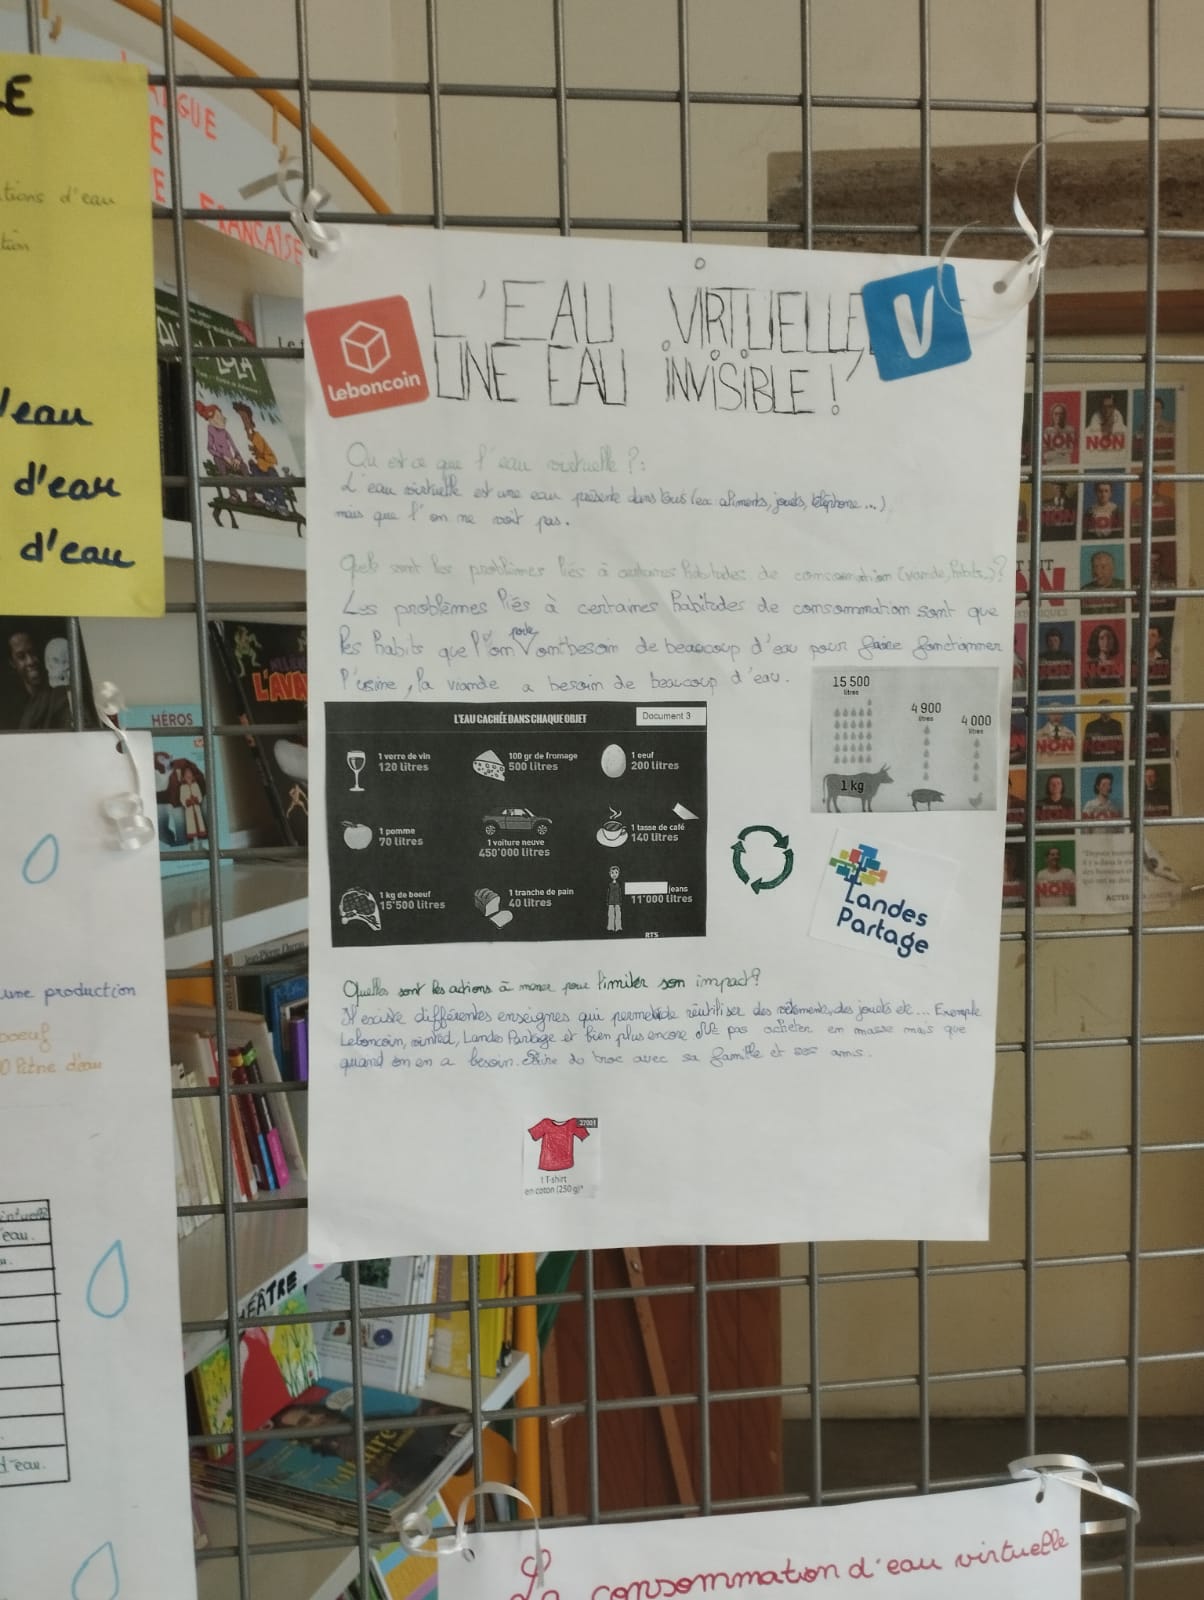 L'EAU VIRTUELLE,
UNE EAU INVISIBLE !
leboncoin
V
Qu est ce que l'eau virtuelle ? :
L'eau virtuelle est une eau présente dans tous (ex: aliments, jouets, téléphone ...)
mais que l'on ne voit pas.
Quels sont les problèmes liés à certaines habitudes de consommation (viande, habits..)?
Les problèmes liés à certaines habitudes de consommation sont que
les habits que l'on porte ont besoin de beaucoup d'eau pour faire fonctionner
l'usine, la viande a besoin de beaucoup d'eau.
L'EAU CACHÉE DANS CHAQUE OBJET
Document 3
1 verre de vin
120 litres
100 gr de fromage
500 litres
1 oeuf
200 litres
1 pomme
70 litres
1 voiture neuve
450'000 litres
1 tasse de café
140 litres
1 kg de boeuf
15'500 litres
1 tranche de pain
40 litres
jeans
11'000 litres
RTS
15 500
litres
4 900
litres
4 000
litres
1 kg
Landes
Partage
Quelles sont les actions à mener pour limiter son impact?
Il existe différentes enseignes qui permet de réutiliser des vêtements, des jouets etc... Exemple
Leboncoin, vinted, Landes Partage et bien plus encore pas acheter en masse mais que
quand on en a besoin. Faire du troc avec sa famille et ses amis.
1 T-shirt
en coton (250 g)*
La consommation d'eau virtuelle
LE
tions d'eau
tion
l'eau
d'eau
d'eau
une production
boeuf
0 litre d'eau
virtuelle
d'eau.
FRANÇAISE
HÉROS
Voltaire
NON
NON
NON
NON